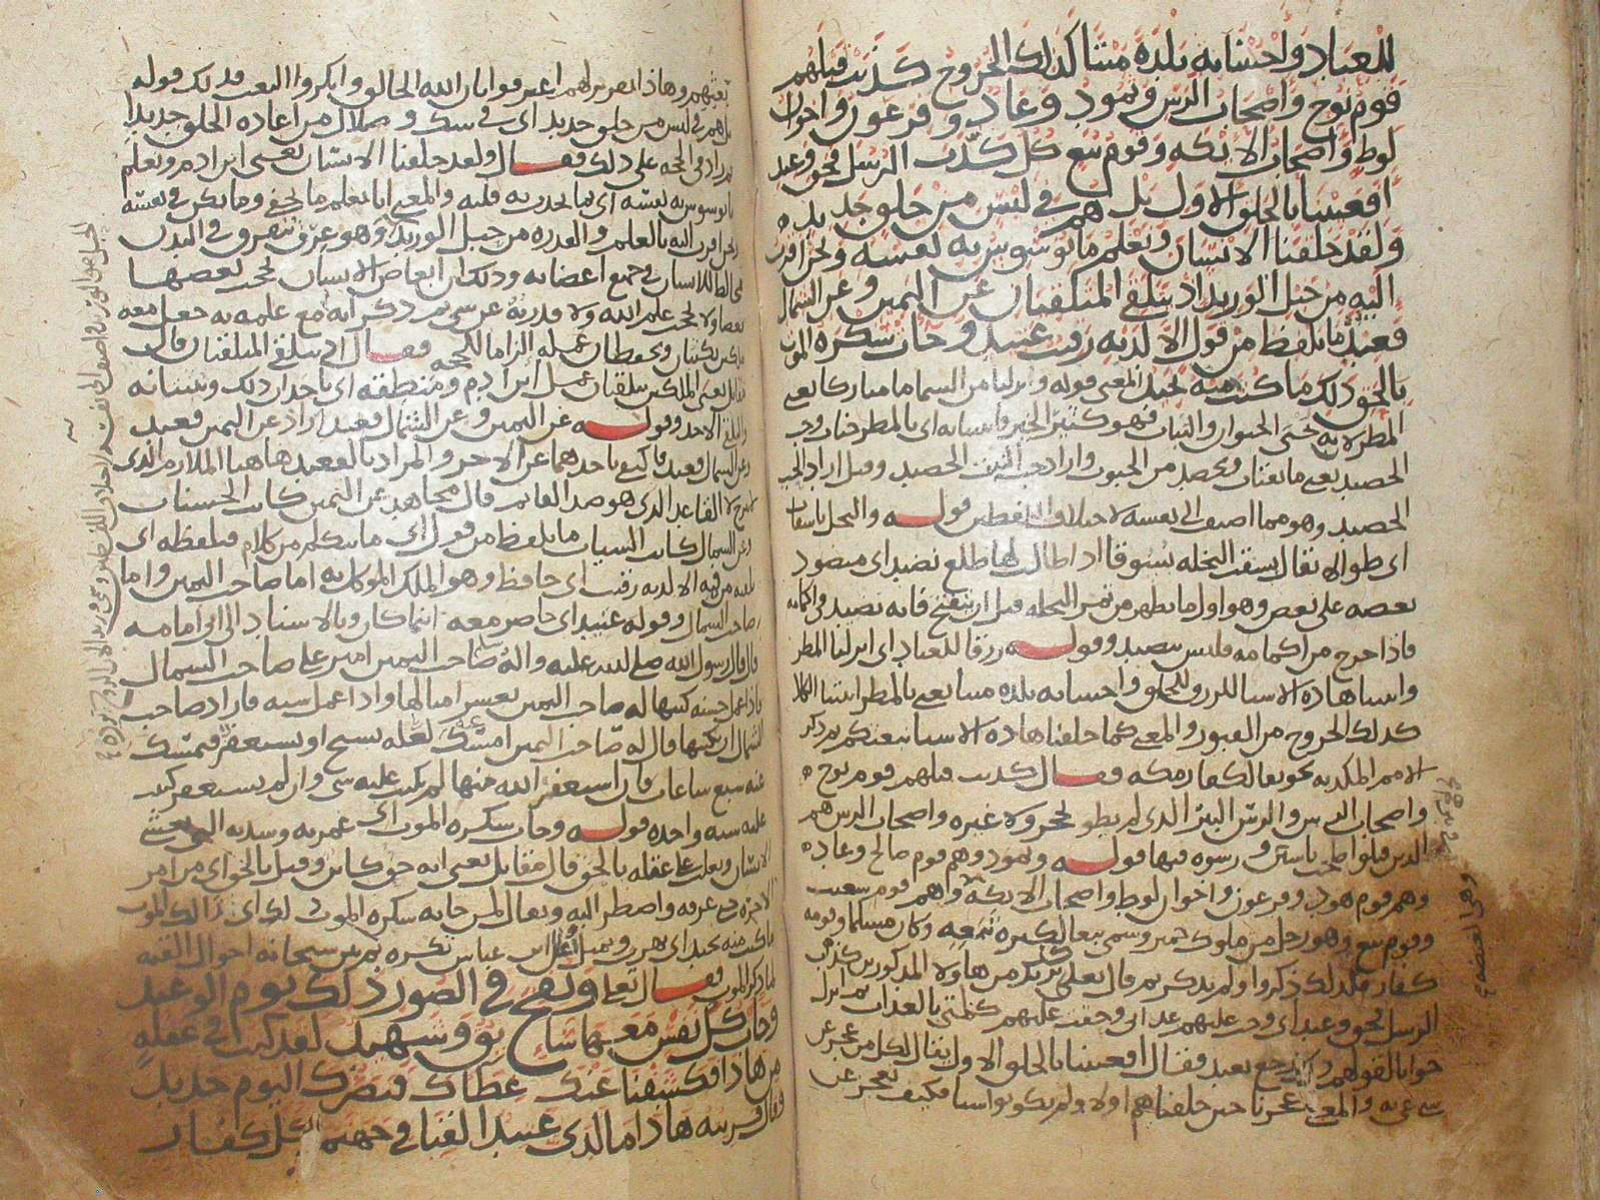 للعباد وأحيينا به بلدة ميتا كذلك الخروج كذبت قبلهم
قوم نوح وأصحاب الرس وثمود وعاد وفرعون وإخوان
لوط وأصحاب الأيكة وقوم تبع كل كذب الرسل فحق وعيد
أفعيينا بالخلق الأول بل هم في لبس من خلق جديد
ولقد خلقنا الإنسان ونعلم ما توسوس به نفسه ونحن أقرب
إليه من حبل الوريد إذ يتلقى المتلقيان عن اليمين وعن الشمال
قعيد ما يلفظ من قول إلا لديه رقيب عتيد وجاءت سكرة الموت
بالحق ذلك ما كنت منه تحيد المعنى قوله وأنزلنا من السماء ماء مباركا يعني
المطر لأن به تحيى الحيوان والنبات فهو كثير الخير وأنبتنا به أي بالمطر جنات وحب
الحصيد يعني ما يقتات ويحصد من الحبوب وأراد حب النبت الحصيد وقيل أراد الحب
الحصيد وهو مما أضيف إلى نفسه لاختلاف اللفظين قوله والنخل باسقات
أي طوالا يقال بسقت النخلة بسوقا إذا طالت لها طلع نضيد أي منضود
بعضه على بعض وهو أول ما يظهر من ثمر النخلة قبل أن ينفتح فإنه نضيد في أكمامه
فإذا خرج من أكمامه فليس بنضيد وقوله رزقا للعباد أي أنزلنا المطر
وأنبتنا هذه الأشياء للرزق للخلق وأحيينا به بلدة ميتا يعني بالمطر أنبتنا الكلأ
كذلك الخروج من القبور والمعنى كما خلقنا هذه الأشياء نبعثكم ثم ذكر
الأمم المكذبة تخويفا لكفار مكة فقال كذبت قبلهم قوم نوح
وأصحاب الرس والرس البئر الذي لم يطو بحجر ولا غيره وأصحاب الرس هم
الذين قتلوا صاحب ياسين ورسوه فيها قوله وثمود وهم قوم صالح وعاد
وهم قوم هود وفرعون وإخوان لوط وأصحاب الأيكة وهم قوم شعيب
وقوم تبع وهو رجل من ملوك حمير وسمي تبعا لكثرة تبعه وكان مسلما وقومه
كفار فلذلك ذكروا ولم يذكر ثم قال تعالى كل من هؤلاء المذكورين كذب
الرسل فحق وعيد أي وجب عليهم عذابي وحقت عليهم كلمتي بالعذاب ثم أنزل
جوابا لقولهم ذلك رجع بعيد فقال أفعيينا بالخلق الأول يقال لكل من عجز عن
شيء عيي به والمعنى عجزنا حين خلقناهم أولا ولم يكونوا شيئا فكيف نعجز عن
بعثهم وهذا تقرير لهم اعترفوا بأن الله الخالق وأنكروا البعث فذلك قوله
بل هم في لبس من خلق جديد أي في شك وضلال من إعادة الخلق جديدا
ثم زاد في الحجة على ذلك فقال ولقد خلقنا الإنسان يعني ابن آدم ونعلم
ما توسوس به نفسه أي ما يحدث به قلبه والمعنى أنا نعلم ما يخفي وما يكن في نفسه
ونحن أقرب إليه بالعلم والقدرة من حبل الوريد وهو عرق يتفرق في البدن
مخالط للإنسان في جميع أعضائه وذلك أن أبعاض الإنسان يحجب بعضها
بعضا ولا يحجب علم الله ولا قدرته عن شيء ثم ذكر أنه مع علمه به جعل معه
ملكين يكتبان ويحفظان عمله إلزاما للحجة فقال إذ يتلقى المتلقيان قال
مقاتل يعني الملكين يتلقيان عمل ابن آدم ومنطقه أي يأخذان ذلك ويثبتانه
والتلقي الأخذ وقوله عن اليمين وعن الشمال قعيد أراد عن اليمين قعيد
وعن الشمال قعيد فاكتفى بأحدهما عن الآخر والمراد بالقعيد هاهنا الملازم الذي
لا يبرح لا القاعد الذي هو ضد القائم قال مجاهد عن اليمين كاتب الحسنات
وعن الشمال كاتب السيئات ما يلفظ من قول أي ما يتكلم من كلام فيلفظه أي
يلقيه من فيه إلا لديه رقيب أي حافظ وهو الملك الموكل به إما صاحب اليمين وإما
صاحب الشمال وقوله عتيد أي حاضر معه أينما كان وبالإسناد إلى أبي أمامة
قال قال رسول الله صلى الله عليه وآله صاحب اليمين أمير على صاحب الشمال
فإذا عمل حسنة كتبها له صاحب اليمين بعشر أمثالها وإذا عمل سيئة فأراد صاحب
الشمال أن يكتبها قال له صاحب اليمين أمسك لعله يسبح أو يستغفر فيمسك
عنه سبع ساعات فإن استغفر الله منها لم يكتب عليه شيء وإن لم يستغفر كتب
عليه سيئة واحدة قوله وجاءت سكرة الموت أي غمرته وشدته التي تغشى
الإنسان وتغلب على عقله بالحق قال مقاتل يعني أنه حق كائن وقيل بالحق أي من أمر
الآخرة حتى عرفه واضطر إليه ويقال لمن جاءته سكرة الموت ذلك أي ذلك الموت
ما كنت منه تحيد أي تهرب وتميل قال ابن عباس تكره ثم بين سبحانه أحوال القيامة
لما ذكر الموت فقال تعالى ونفخ في الصور ذلك يوم الوعيد
وجاءت كل نفس معها سائق وشهيد لقد كنت في غفلة
من هذا فكشفنا عنك غطاءك فبصرك اليوم حديد
وقال قرينه هذا ما لدي عتيد ألقيا في جهنم كل كفار